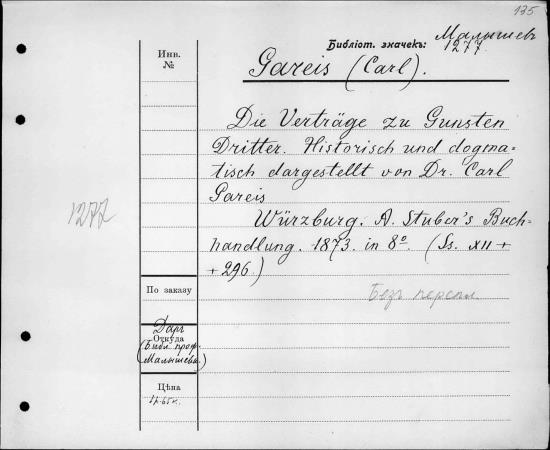 135
Библіот. значекъ: Малышевъ
1277.
Инв.
№
Gareis (Carl).
Die Verträge zu Gunsten
Dritter. Historisch und dogma-
tisch dargestellt von Dr. Carl
Gareis
Würzburg. A. Stuber's Buch-
handlung. 1873. in 8º. (Ss. XII +
+ 296.)
1277
По заказу
Безъ перепл.
Даръ
Откуда
(Библ. проф.
Малышева)
Цѣна